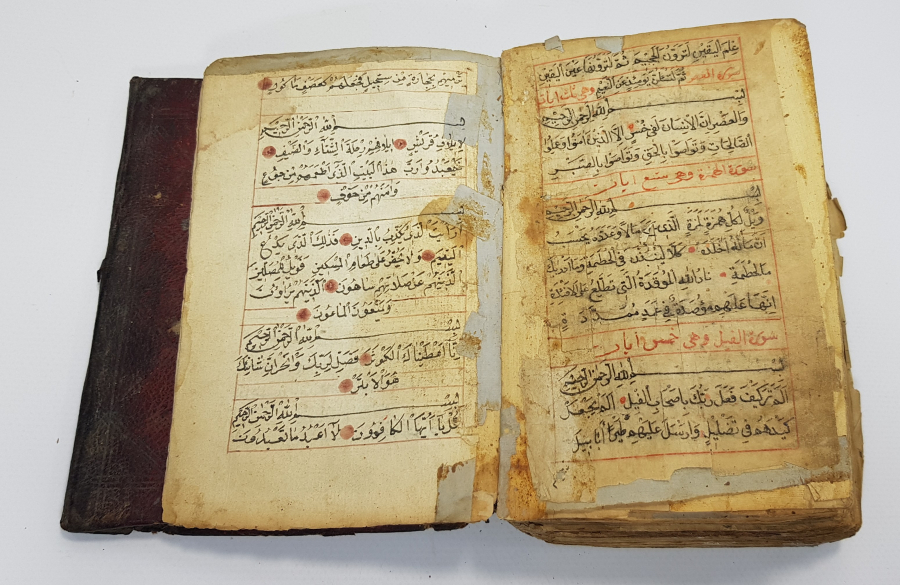 علم اليقين لترون الجحيم ثم لترونها عين اليقين
سورة العصر ثم لتسئلن يومئذ عن النعيم وهي ثلث ايات
بسم الله الرحمن الرحيم
والعصر ان الانسان لفي خسر الا الذين امنوا وعملوا
الصالحات وتواصوا بالحق وتواصوا بالصبر
سورة الهمزة وهو تسع ايات
بسم الله الرحمن الرحيم
ويل لكل همزة لمزة الذي جمع مالا وعدده يحسب
ان ماله اخلده كلا لينبذن في الحطمة وما ادريك
ما الحطمة نار الله الموقدة التي تطلع على الافئدة
انها عليهم مؤصدة في عمد ممددة
سورة الفيل وهي خمس ايات
بسم الله الرحمن الرحيم
الم تر كيف فعل ربك باصحاب الفيل الم يجعل
كيدهم في تضليل وارسل عليهم طيرا ابابيل
ترميهم بحجارة من سجيل فجعلهم كعصف ماكول
بسم الله الرحمن الرحيم
لايلاف قريش ايلافهم رحلة الشتاء والصيف
فليعبدوا رب هذا البيت الذي اطعمهم من جوع
وامنهم من خوف
بسم الله الرحمن الرحيم
ارايت الذي يكذب بالدين فذلك الذي يدع
اليتيم ولا يحض على طعام المسكين فويل للمصلين
الذينهم عن صلاتهم ساهون الذينهم يراؤن
ويمنعون الماعون
بسم الله الرحمن الرحيم
انا اعطيناك الكوثر فصل لربك وانحر ان شانئك
هو الابتر
بسم الله الرحمن الرحيم
قل يا ايها الكافرون لا اعبد ما تعبدون